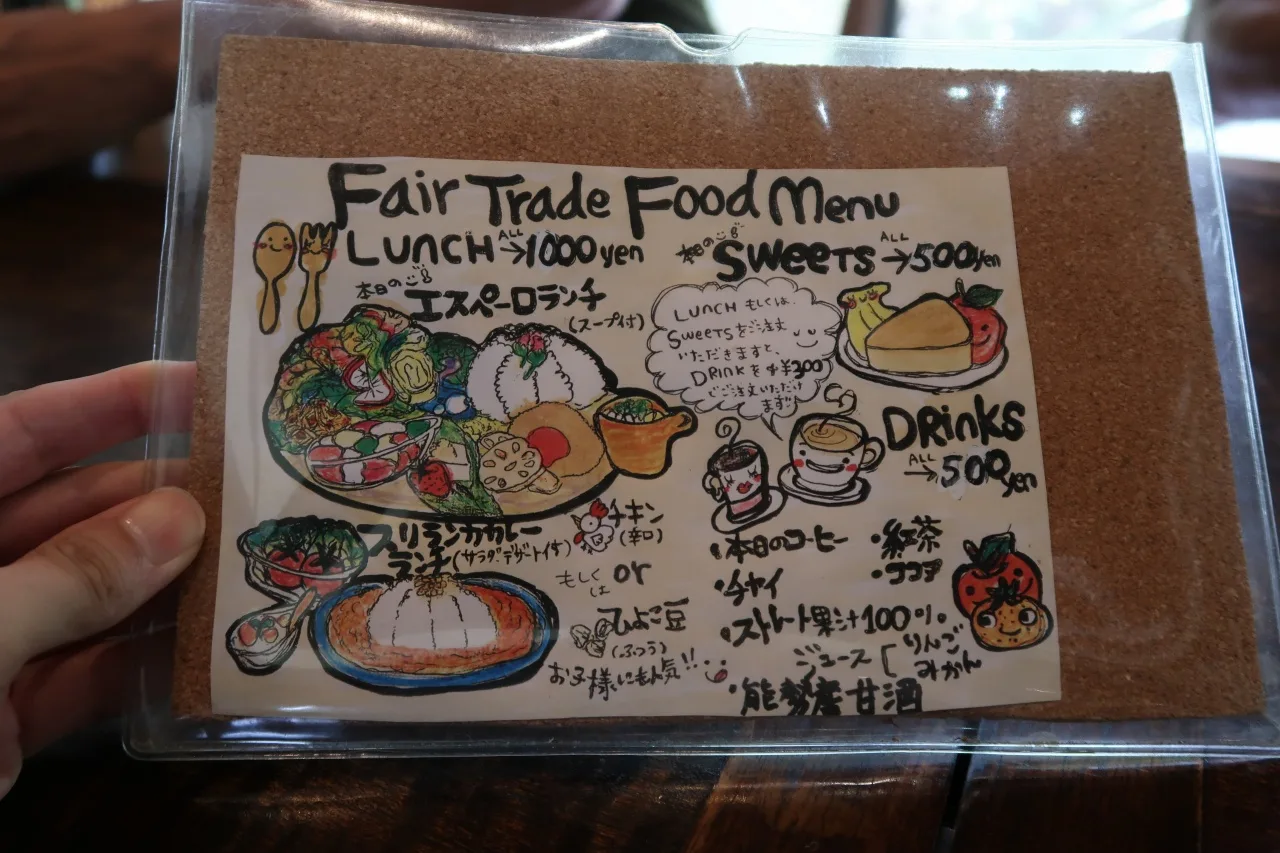 Fair Trade Food Menu
LUNCH ALL→1000yen
本日のごはん
エスペーロランチ
(スープ付)
スリランカカレー
ランチ(サラダ・デザート付)
チキン
(辛口)
もしくは or
ひよこ豆
(ふつう)
お子様にも人気!!
本日の SWEETS ALL→500yen
LUNCH もしくは、
SWEETSをご注文
いただきますと、
DRINKを¥300
でご注文いただけ
ます♪
DRINKS
ALL→500yen
・本日のコーヒー
・紅茶
・チャイ
・ココア
・ストレート果汁100%
ジュース[りんご
みかん
・能勢産甘酒